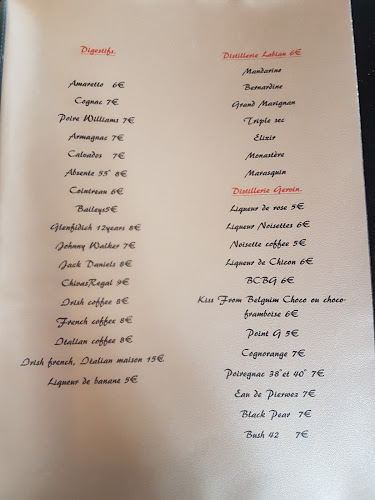 Digestifs.
Amaretto 6€
Cognac 7€
Poire Williams 7€
Armagnac 7€
Calvados 7€
Absente 55° 8€
Cointreau 6€
Baileys5€
Glenfidich 12years 8€
Johnny Walker 7€
Jack Daniels 8€
ChivasRegal 9€
Irish coffee 8€
French coffee 8€
Italian coffee 8€
Irish french, Italian maison 15€
Liqueur de banane 5€
Distillerie Labiau 6€
Mandarine
Bernardine
Grand Marignan
Triple sec
Elixir
Monastère
Marasquin
Distillerie Gervin.
Liqueur de rose 5€
Liqueur Noisettes 6€
Noisette coffee 5€
Liqueur de Chicon 6€
BCBG 6€
Kiss From Belguim Choco ou choco-
framboise 6€
Point G 5€
Cognorange 7€
Poirognac 38°et 40° 7€
Eau de Pierwez 7€
Black Pear 7€
Bush 42 7€